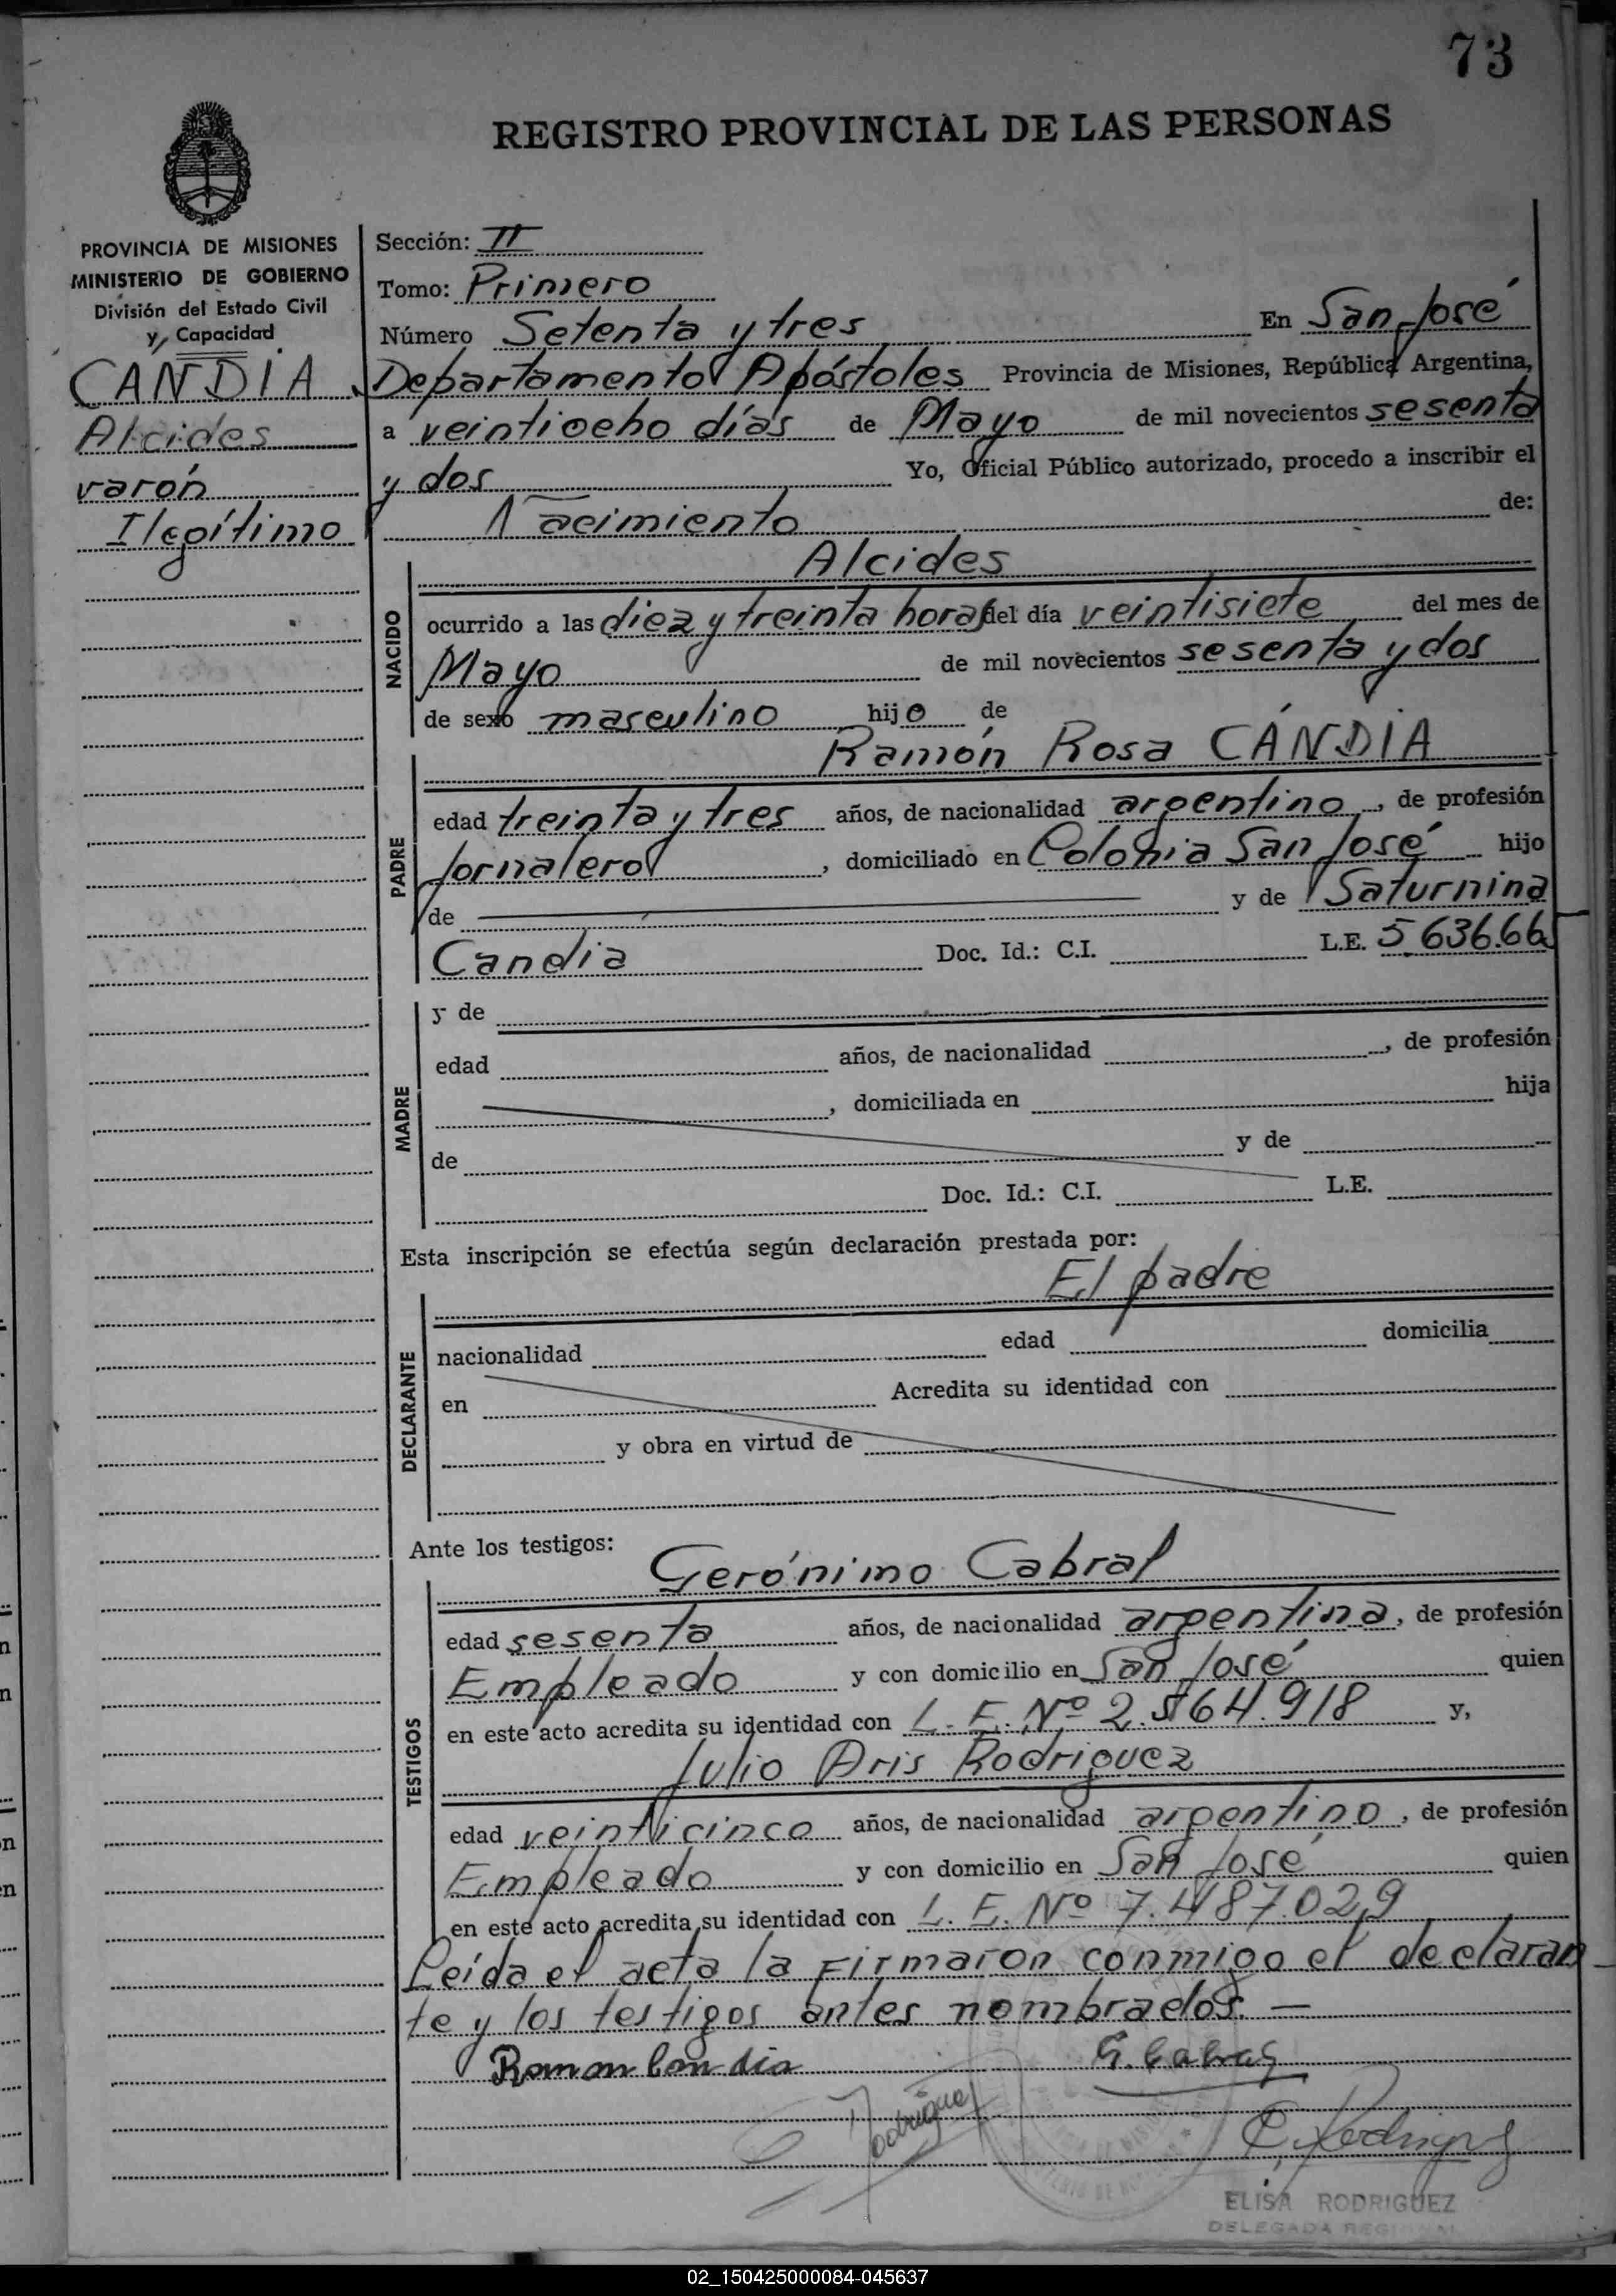 73
REGISTRO PROVINCIAL DE LAS PERSONAS
PROVINCIA DE MISIONES
MINISTERIO DE GOBIERNO
División del Estado Civil
y Capacidad
CANDIA
Alcides
varón
Ilegítimo
Sección: II
Tomo: Primero
Número Setenta y tres En San José
Departamento Apóstoles Provincia de Misiones, República Argentina,
a veintiocho días de Mayo de mil novecientos sesenta
y dos Yo, Oficial Público autorizado, procedo a inscribir el
Nacimiento de:
Alcides
NACIDO
ocurrido a las diez y treinta horas del día veintisiete del mes de
Mayo de mil novecientos sesenta y dos
de sexo masculino hijo de
Ramón Rosa CÁNDIA
PADRE
edad treinta y tres años, de nacionalidad argentino, de profesión
Jornalero, domiciliado en Colonia San José hijo
de y de Saturnina
Candia Doc. Id.: C.I. L.E. 5.636.66
MADRE
y de
edad años, de nacionalidad , de profesión
, domiciliada en hija
de y de
Doc. Id.: C.I. L.E.
Esta inscripción se efectúa según declaración prestada por:
El padre
DECLARANTE
nacionalidad edad domicilia
en Acredita su identidad con
y obra en virtud de
Ante los testigos:
Gerónimo Cabral
TESTIGOS
edad sesenta años, de nacionalidad argentina, de profesión
Empleado y con domicilio en San José quien
en este acto acredita su identidad con L.E. Nº 2.564.918 y,
Julio Aris Rodriguez
edad veinticinco años, de nacionalidad argentino, de profesión
Empleado y con domicilio en San José quien
en este acto acredita su identidad con L.E. Nº 7.487.029
Leída el acta la firmaron conmigo el declaran
te y los testigos antes nombrados. —
Ramon Candia G. Cabral
Rodriguez E. Rodriguez
ELISA RODRIGUEZ
DELEGADA REGIONAL
02_150425000084-045637